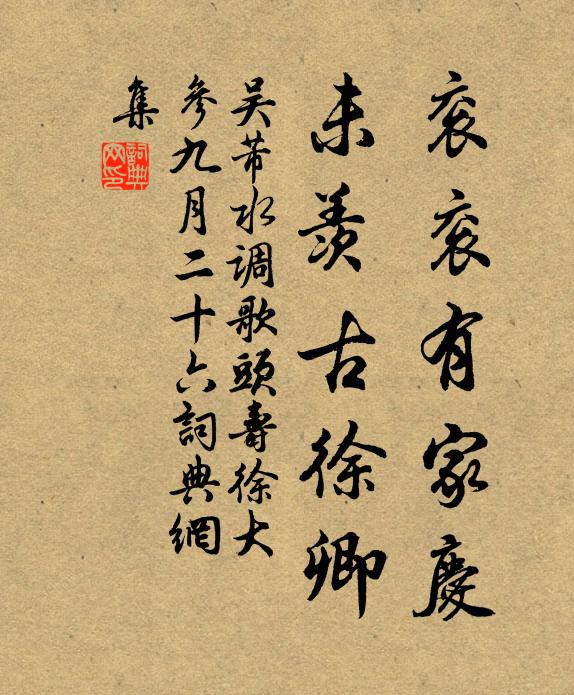 衮衮有家慶
未羨古徐卿
吴芾水调歌頭壽徐大
參九月二十六詞典網
集
詞典网印